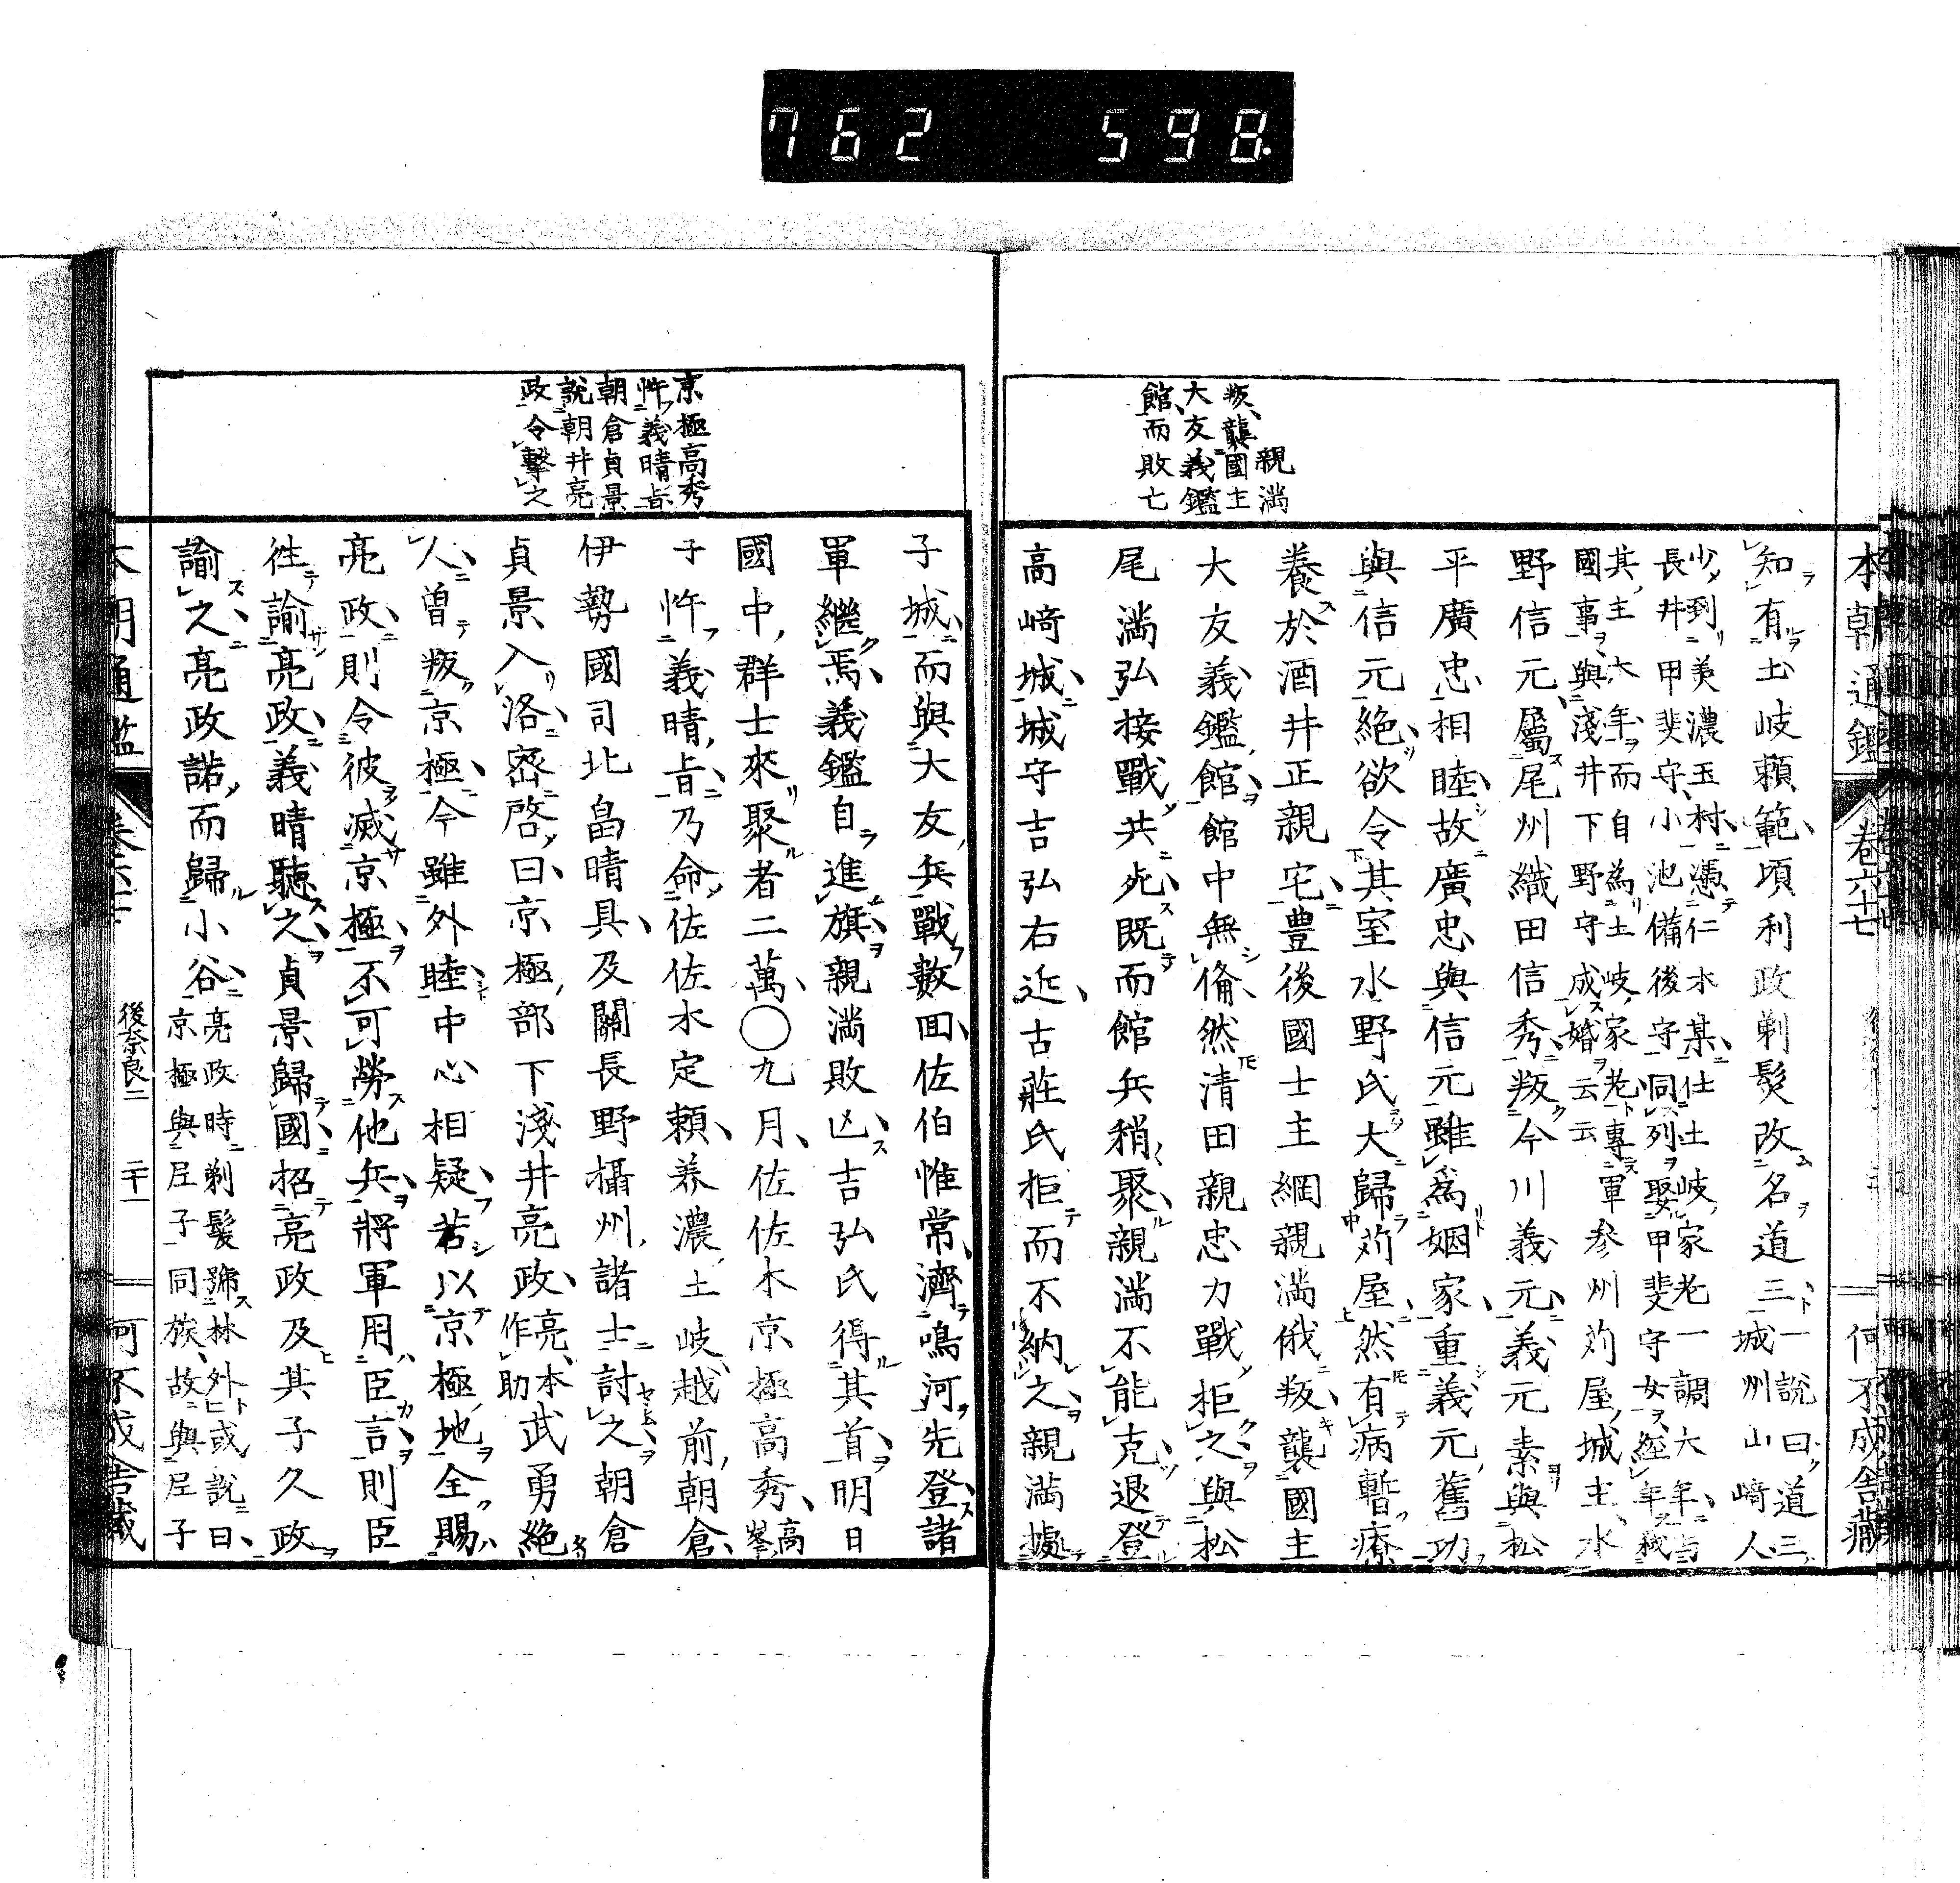 762 598.
本朝通鑑 卷六十七 何不成舎藏
親満
叛襲國主
大友義鑑
館而敗亡
知有土岐頼範頃利政剃髮改名道三一說曰道三城州山崎人
少到美濃玉村憑仁木某仕土岐家老一調大年
長井甲斐守小池備後守同列娶甲斐守女經年
其主大年而自為土岐家老專軍
國事與淺井下野守成婚云云參州苅屋城主水
野信元屬尾州織田信秀叛今川義元義元素與松
平廣忠相睦故廣忠與信元雖為姻家重義元舊功
與信元絶欲令其室水野氏大歸苅屋然有病暫療
養於酒井正親宅豊後國士主綱親満俄叛襲國主
大友義鑑館館中無俻然清田親忠力戰拒之與松
尾満弘接戰共死既而館兵稍聚親満不能克退登
高崎城城守吉弘右近古莊氏拒而不納之親満據
京極高秀
忤義晴旨
朝倉貞景
說朝井亮
政令擊之
子城而與大友兵戰數回佐伯惟常濟鳴河先登諸
軍繼焉義鑑自進旗親満敗凶吉弘氏得其首明日
國中群士來聚者二萬○九月佐佐木京極高秀高峯
子忤義晴旨乃命佐佐木定頼美濃土岐越前朝倉
伊勢國司北畠晴具及關長野攝州諸士討之朝倉
貞景入洛密啓曰京極部下淺井亮政亮本作助武勇絶
人曽叛京極今雖外睦中心相疑若以京極地全賜
亮政則令彼滅京極不可勞他兵將軍用臣言則臣
往諭亮政義晴聽之貞景歸國招亮政及其子久政
諭之亮政諾而歸小谷亮政時剃髮號林外或說曰
京極與尼子同族故與尼子
後奈良二 二十一